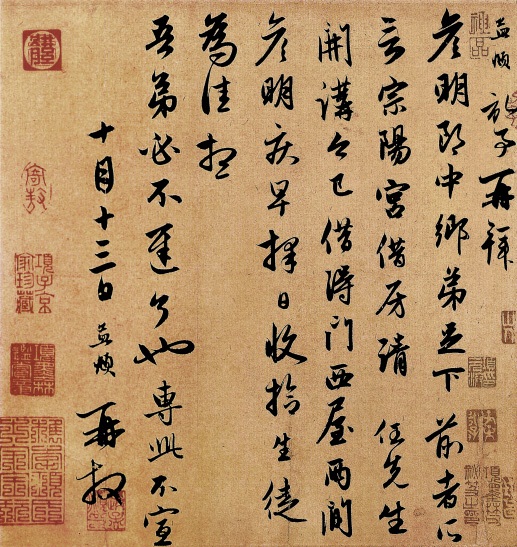 孟頫 再拜
彥明郎中鄉弟足下 前者所
言宗陽宮借房請 任先生
開講今已借得門西屋兩間
彥明疾早擇日收拾生徒
為佳想
吾弟必不遲了也專此不宣
十月十三日 孟頫 再拜
神品
項子京家珍藏